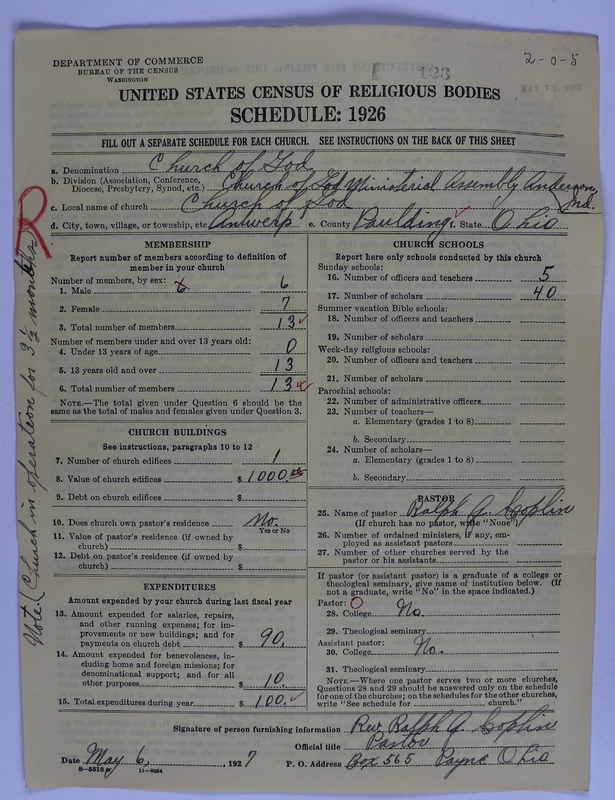 DEPARTMENT OF COMMERCE
BUREAU OF THE CENSUS
WASHINGTON
2-0-5
123
UNITED STATES CENSUS OF RELIGIOUS BODIES
SCHEDULE: 1926
FILL OUT A SEPARATE SCHEDULE FOR EACH CHURCH. SEE INSTRUCTIONS ON THE BACK OF THIS SHEET
a. Denomination Church of God
b. Division (Association, Conference, Diocese, Presbytery, Synod, etc.) Church of God Ministerial Assembly Anderson, Ind.
c. Local name of church Church of God
d. City, town, village, or township, etc. Antwerp e. County Paulding f. State Ohio
Note: (Church in operation for 3½ months)
MEMBERSHIP
Report number of members according to definition of
member in your church
Number of members, by sex:
1. Male 6 6
2. Female 7
3. Total number of members 13
Number of members under and over 13 years old:
4. Under 13 years of age 0
5. 13 years old and over 13
6. Total number of members 13
NOTE.—The total given under Question 6 should be
same as the total of males and females given under Question 3.
CHURCH BUILDINGS
See instructions, paragraphs 10 to 12
7. Number of church edifices 1
8. Value of church edifices $ 1000 00
9. Debt on church edifices $
10. Does church own pastor's residence No.
Yes or No
11. Value of pastor's residence (if owned by
church) $
12. Debt on pastor's residence (if owned by
church) $
EXPENDITURES
Amount expended by your church during last fiscal year
13. Amount expended for salaries, repairs,
and other running expenses; for im-
provements or new buildings; and for
payments on church debt $ 90.
14. Amount expended for benevolences, in-
cluding home and foreign missions; for
denominational support; and for all
other purposes $ 10.
15. Total expenditures during year $ 100.
CHURCH SCHOOLS
Report here only schools conducted by this church
Sunday schools:
16. Number of officers and teachers 5
17. Number of scholars 40
Summer vacation Bible schools:
18. Number of officers and teachers
19. Number of scholars
Week-day religious schools:
20. Number of officers and teachers
21. Number of scholars
Parochial schools:
22. Number of administrative officers
23. Number of teachers—
a. Elementary (grades 1 to 8)
b. Secondary
24. Number of scholars—
a. Elementary (grades 1 to 8)
b. Secondary
PASTOR
25. Name of pastor Ralph J. Coplin
(If church has no pastor, write "None")
26. Number of ordained ministers, if any, em-
ployed as assistant pastors
27. Number of other churches served by the
pastor or his assistants
If pastor (or assistant pastor) is a graduate of a college or
theological seminary, give name of institution below. (If
not a graduate, write "No" in the space indicated.)
Pastor:
28. College No.
29. Theological seminary
Assistant pastor:
30. College No.
31. Theological seminary
NOTE.—Where one pastor serves two or more churches,
Questions 28 and 29 should be answered only on the schedule
for one of the churches; on the schedules for the other churches,
write "See schedule for church."
Signature of person furnishing information Rev. Ralph J. Coplin
Official title Pastor
Date May 6, , 1927 P. O. Address Box 565 Payne Ohio
8—5518a 11—9084